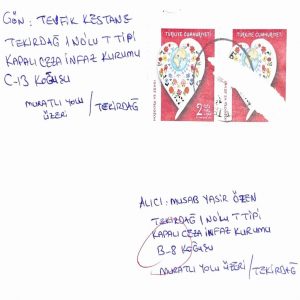 GÖN : TEVFİK KESTANE
TEKİRDAĞ 1 NOLU T TİPİ
KAPALI CEZA İNFAZ KURUMU
C-13 KOĞUŞU
MURATLI YOLU
ÜZERİ / TEKİRDAĞ
TÜRKİYE CUMHURİYETİ
TÜRKİYE CUMHURİYETİ
ALICI : MUSAB YASİR ÖZEN
TEKİRDAĞ 1 NOLU T TİPİ
KAPALI CEZA İNFAZ KURUMU
B-8 KOĞUŞU
MURATLI YOLU ÜZERİ / TEKİRDAĞ